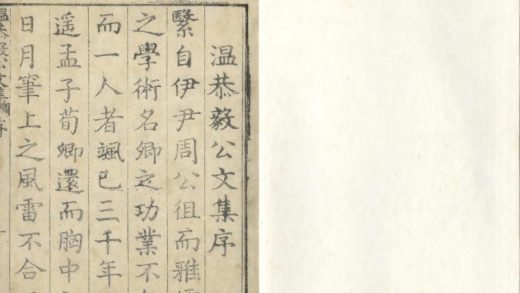 温恭毅公文集序
繄自伊尹周公徂而雅
之學術名卿之功業不
而一人者颯已三千年
遥孟子荀卿還而胸中
日月筆上之風雷不合
温恭毅公文集 序